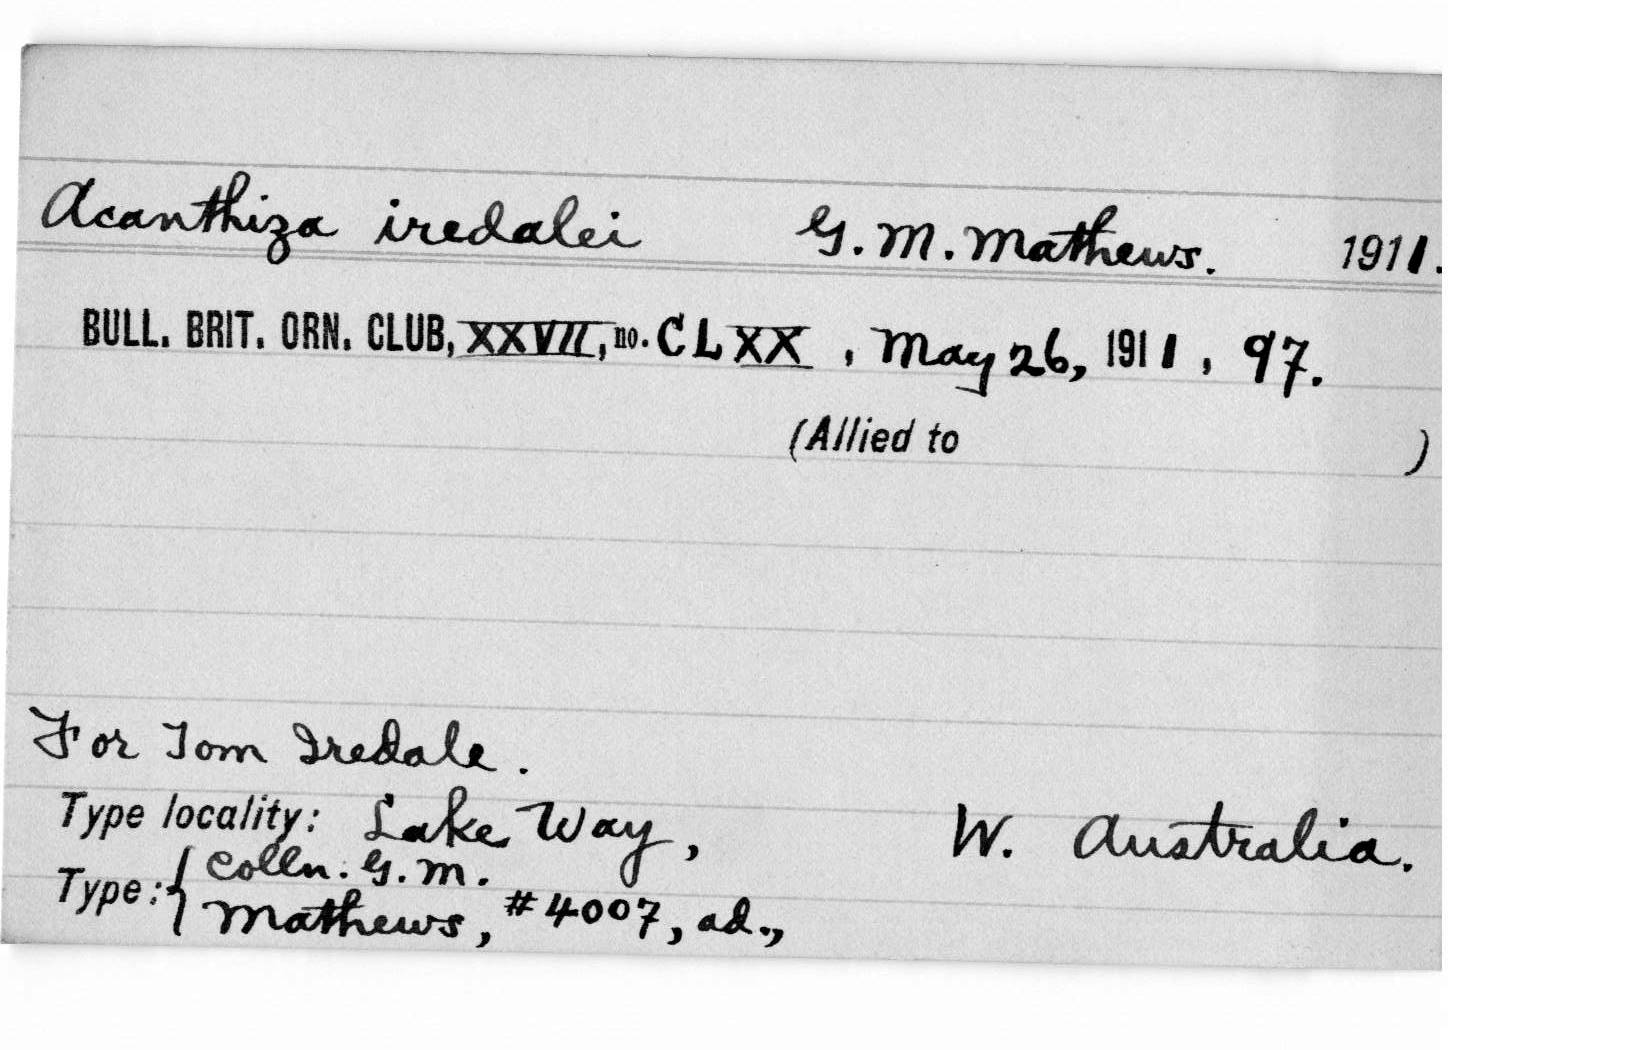 Acanthiza iredalei G. M. Mathews. 1911.
BULL. BRIT. ORN. CLUB, XXVII, no. CLXX, May 26, 1911, 97.
(Allied to )
For Tom Iredale.
Type locality: Lake Way, W. Australia.
Type: { Colln. G. M.
Mathews, #4007, ad.,